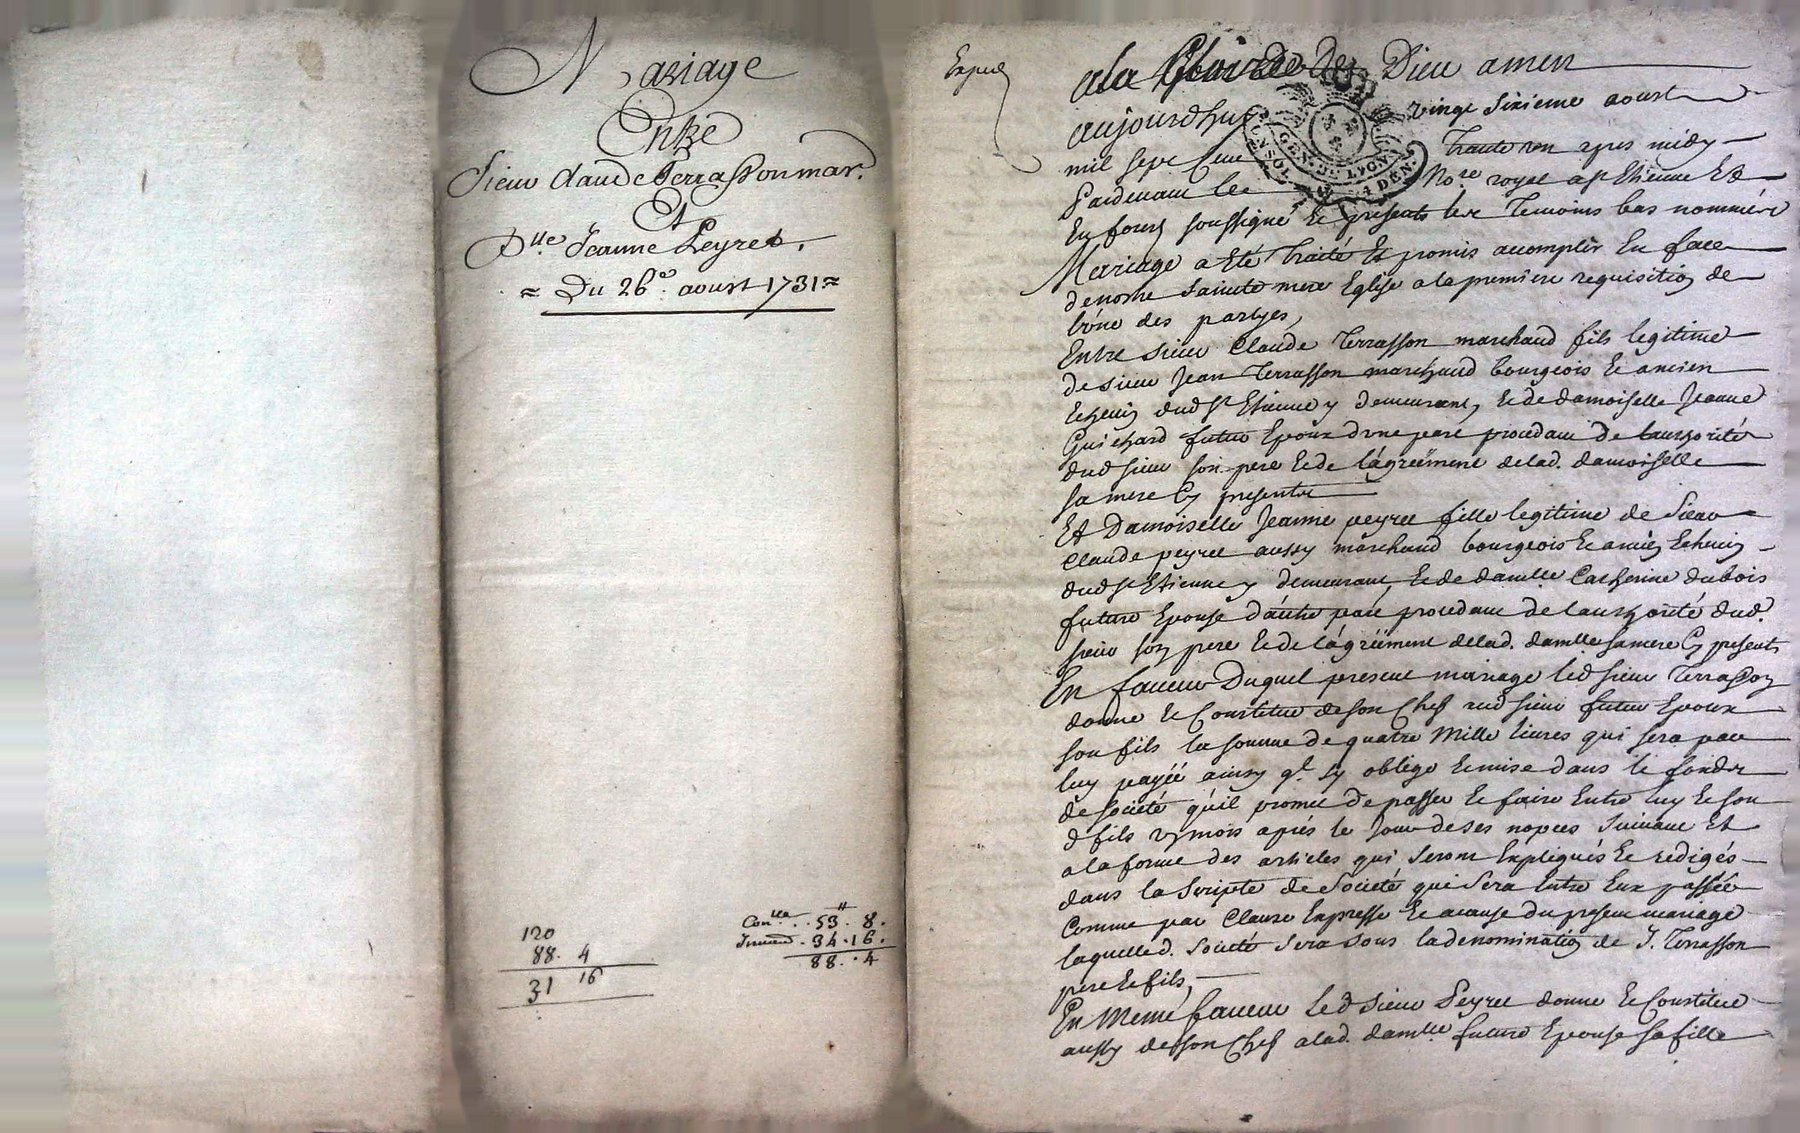 Mariage
Entre
Sieur Claude Terrasson mar.
Et
Dlle Jeanne Peyret.
= Du 26e. aoust 1731 =
Conlle. . 53# 8.
. 34 . 16.
88. . 4
120
88. 4
31 16
Exped
a la gloire de Dieu amen
aujourdhuy vingt sixieme aoust
mil sept cent trente un apres midy
Pardevant le Nore royal a St Etienne Et
En forest soussigné Et presents les Temoins bas nommés
Mariage a Eté traité Et promis accomplir En face
de notre sainte mere Eglise a la premiere requisition de
l'une des partyes,
Entre sieur Claude Terrasson marchand fils legitime
de sieur Jean Terrasson marchand bourgeois Et ancien
Echevin dud St Etienne y demeurant, Et de damoiselle Jeanne
Guichard futur Epoux d'une part procedant de l'authorité
dud sieur son pere Et de l'agréément de lad. damoiselle
sa mere Cy presente
Et Damoiselle Jeanne peyret fille legitime de Sieur
Claude peyret aussy marchand bourgeois Et ancien Echevin
dud St Etienne y demeurant, Et de damlle Catherine dubois
future Epouse d'autre part procedant de l'authorité dud.
sieur son pere Et de l'agréément de lad. damlle sa mere Cy presents
En faveur Duquel present mariage led sieur Terrasson
donne Et Constitue de son Chef aud sieur futur Epoux
son fils la somme de quatre Mille livres qui sera par
luy payéé ainsy ql. sy oblige Et mise dans le fonds
de société qu'il promet de passer Et faire Entre luy Et son
d fils six mois aprés le jour de ses nopces suivant Et
a la forme des articles qui seront Expliqués Et redigés
dans la scripte de Société qui sera Entre Eux passée
Comme par Clause Expresse Et a cause du present mariage
laquelle d. société sera sous la denomination de J. Terrasson
pere Et fils,
En Meme faveur led sieur Peyret donne Et Constitue
aussy de son Chef a lad. damlle future Epouse sa fille